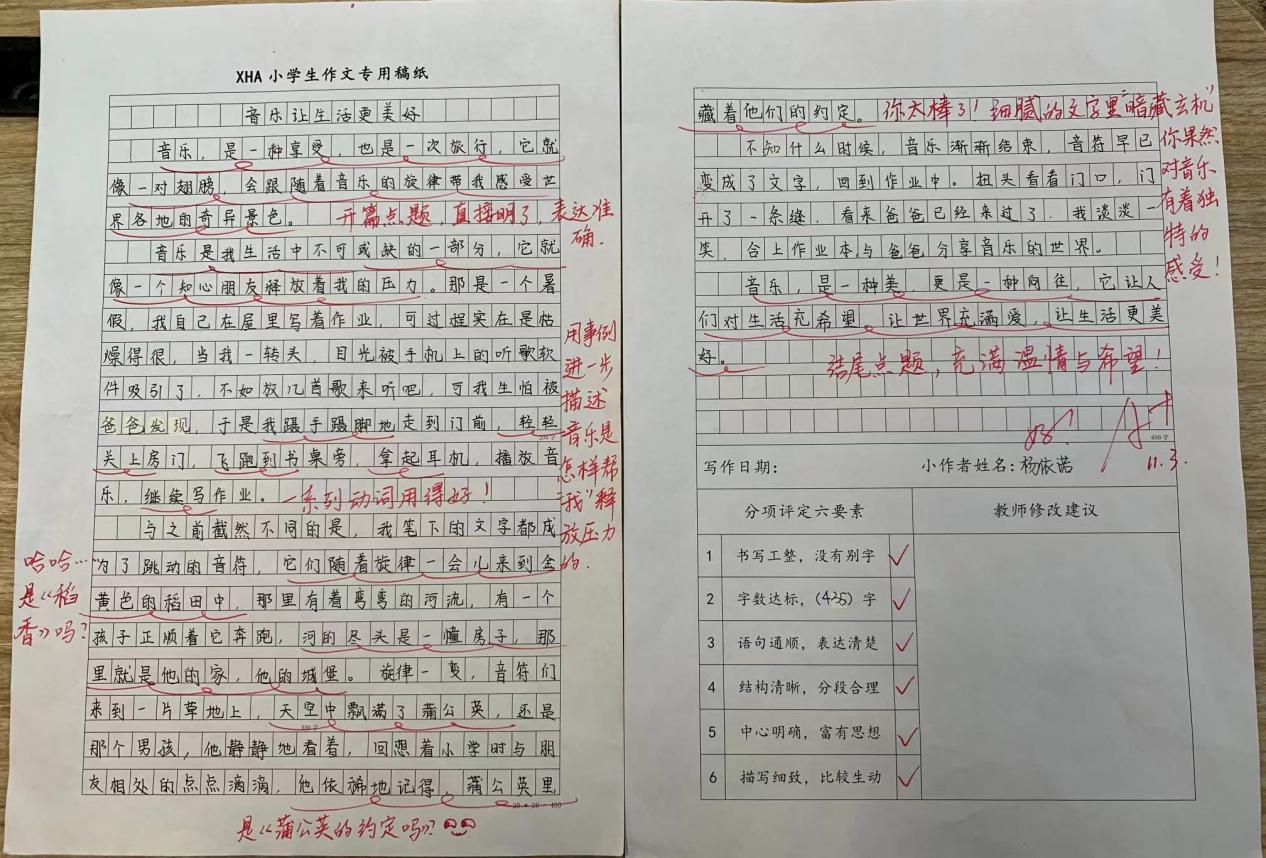 XHA 小学生作文专用稿纸
音乐让生活更美好
音乐，是一种享受，也是一次旅行，它就
像一对翅膀，会跟随着音乐的旋律带我感受世
界各地的奇异景色。
开篇点题，直接明了，表达准
确.
音乐是我生活中不可或缺的一部分，它就
像一个知心朋友释放着我的压力。那是一个暑
假，我自己在屋里写着作业，可过程实在是枯
燥得很，当我一转头，目光被手机上的听歌软
件吸引了，不如放几首歌来听吧，可我生怕被
爸爸发现，于是我蹑手蹑脚地走到门前，轻轻
200字
关上房门，飞跑到书桌旁，拿起耳机，播放音
乐，继续写作业。
一系列动词用得好！
用事例
进一步
描述
音乐是
怎样帮
“我”释
放压力
的.
与之前截然不同的是，我笔下的文字都成
为了跳动的音符，它们随着旋律一会儿来到金
黄色的稻田中，那里有着弯弯的河流，有一个
孩子正顺着它奔跑，河的尽头是一幢房子，那
里就是他的家，他的城堡。旋律一变，音符们
来到一片草地上，天空中飘满了蒲公英，还是
那个男孩，他静静地看着，回想着小学时与朋
友相处的点点滴滴，他依稀地记得，蒲公英里
20×20=400
哈哈…
是《稻
香》吗？
是《蒲公英的约定吗》？
藏着他们的约定。
你太棒了！细腻的文字里“暗藏玄机”
你果然
对音乐
有着独
特的
感受！
不知什么时候，音乐渐渐结束，音符早已
变成了文字，回到作业中。扭头看看门口，门
开了一条缝，看来爸爸已经来过了，我淡淡一
笑，合上作业本与爸爸分享音乐的世界。
音乐，是一种美，更是一种向往，它让人
们对生活充希望，让世界充满爱，让生活更美
好。
结尾点题，充满温情与希望！
600字
好！
A+
11.3.
写作日期：
小作者姓名：杨依诺
分项评定六要素
教师修改建议
1 书写工整，没有别字 ✓
2 字数达标，(435) 字 ✓
3 语句通顺，表达清楚 ✓
4 结构清晰，分段合理 ✓
5 中心明确，富有思想 ✓
6 描写细致，比较生动 ✓